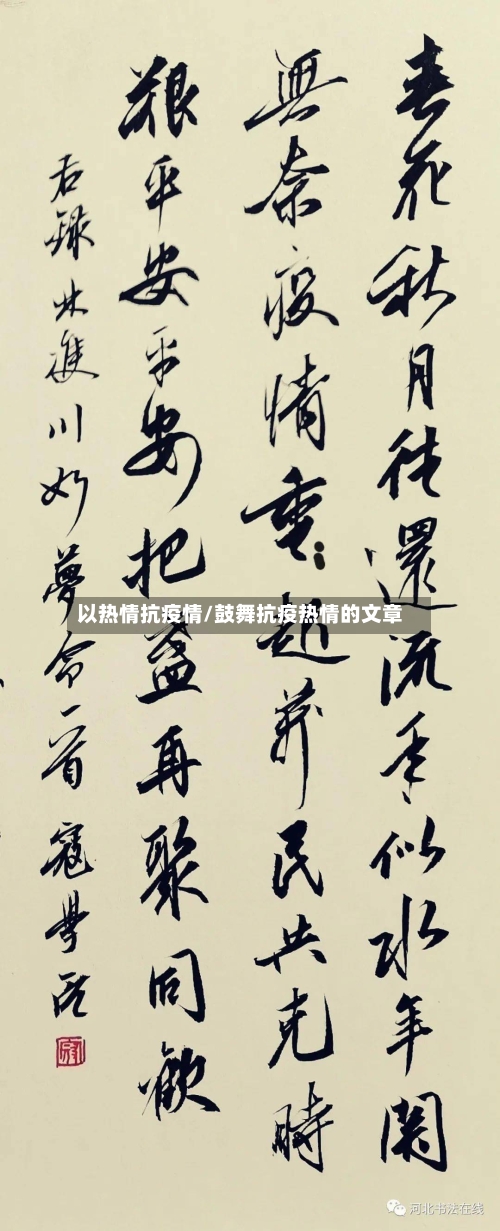 春花秋月往還流年似水年關
無奈疫情重起萬民共克時
艱平安平安把盞再聚同歡
右録林雙川如夢令一首寇學臣
以热情抗疫情/鼓舞抗疫热情的文章
河北书法在线